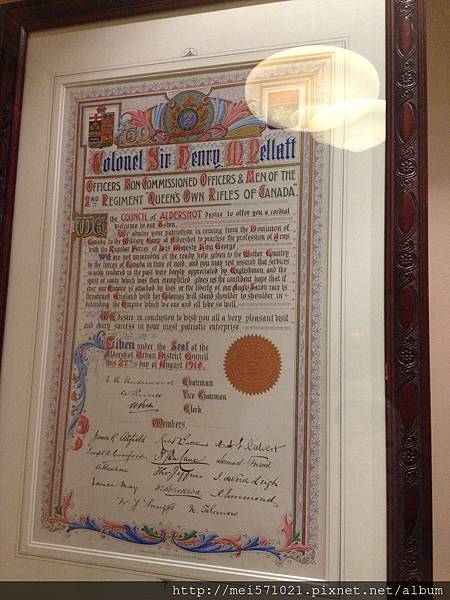 To
Colonel Sir Henry M. Pellatt
Officers Non-Commissioned Officers & Men of the
2nd Regiment "Queen's Own Rifles of Canada"
We the Council of Aldershot desire to offer you a cordial
welcome to our Town.
We admire your patriotism in coming from the Dominion of
Canada to the Military Camp at Aldershot to practise the profession of Arms
with the Regular Forces of His Majesty King George.
We are not unmindful of the ready help given to the Mother Country
by the forces of Canada in time of need, and you may rest assured that services
so nobly rendered in the past were deeply appreciated by Englishmen and the
spirit of unity which was then exemplified gives us the confident hope that if
ever our Empire is attacked by foes or the liberty of our Anglo Saxon race is
threatened England with her Colonies will stand shoulder to shoulder in
defending the Empire which we one and all love so well.
We desire in conclusion to wish you all a very pleasant visit
and every success in your most patriotic enterprise.
Given under the Seal of the
Aldershot Urban District Council
this 27th day of August 1910.
Chairman
Vice Chairman
Clerk
Members.
http://mei571021.pixnet.net/album